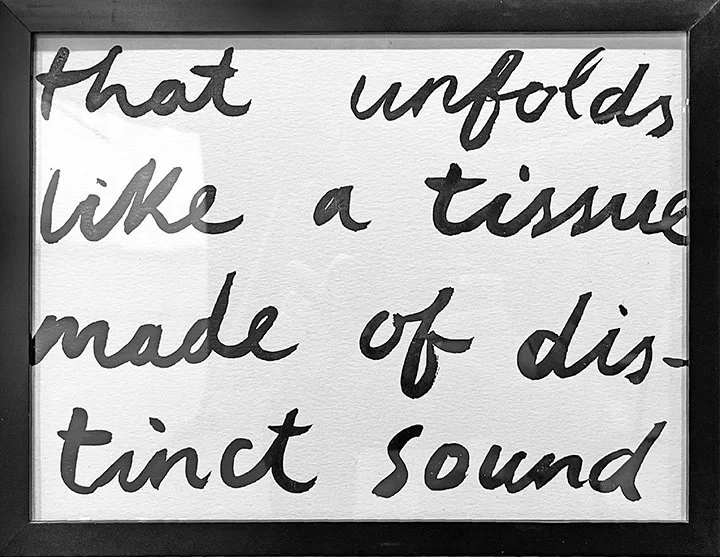 that unfolds
like a tissue
made of dis-
tinct sound